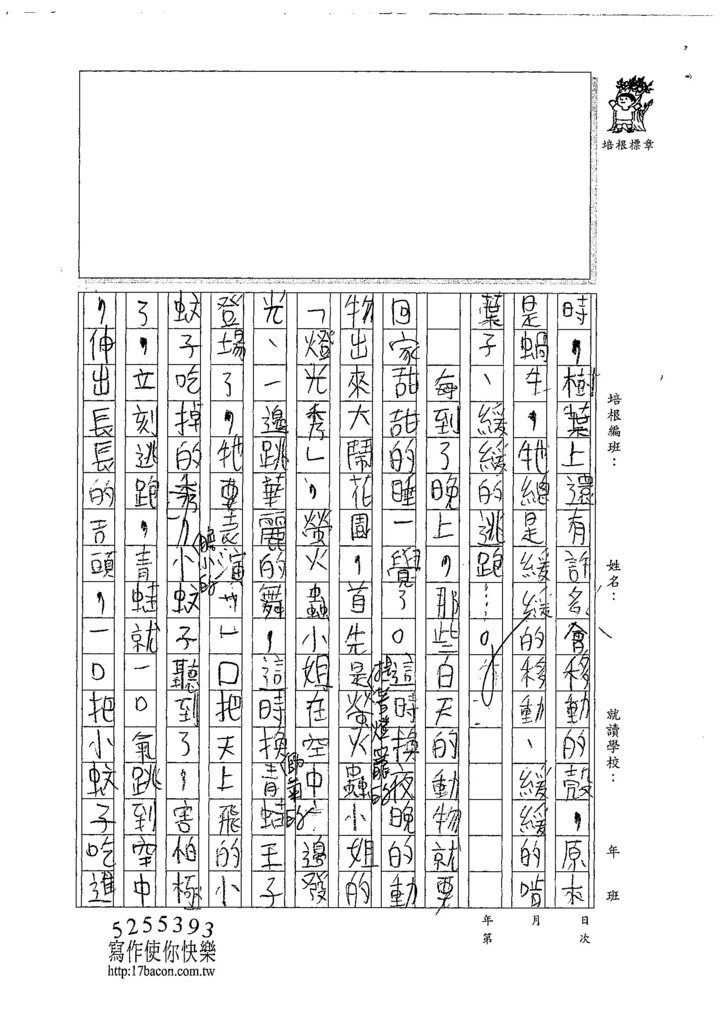 培根標章
培根編班：
姓名：
就讀學校：
年 班
時，樹葉上還有許多會移動的殼，原來
是蝸牛，牠總是緩緩的移動、緩緩的啃
葉子、緩緩的逃跑……。
每到了晚上，那些白天的動物就要
回家甜甜的睡一覺了。這時換夜晚的動
物出來大鬧花園，首先是提著燈籠的螢火蟲小姐的
「燈光秀」，螢火蟲小姐在空中一邊發
光、一邊跳華麗的舞，這時換帥氣的青蛙王子
登場了，牠要表演一口把天上飛的小
蚊子吃掉的秀，膽小的小蚊子聽到了，害怕極
了，立刻逃跑，青蛙就一口氣跳到空中
，伸出長長的舌頭，一口把小蚊子吃進
年 月 日
第 次
5255393
寫作使你快樂
http:17bacon.com.tw